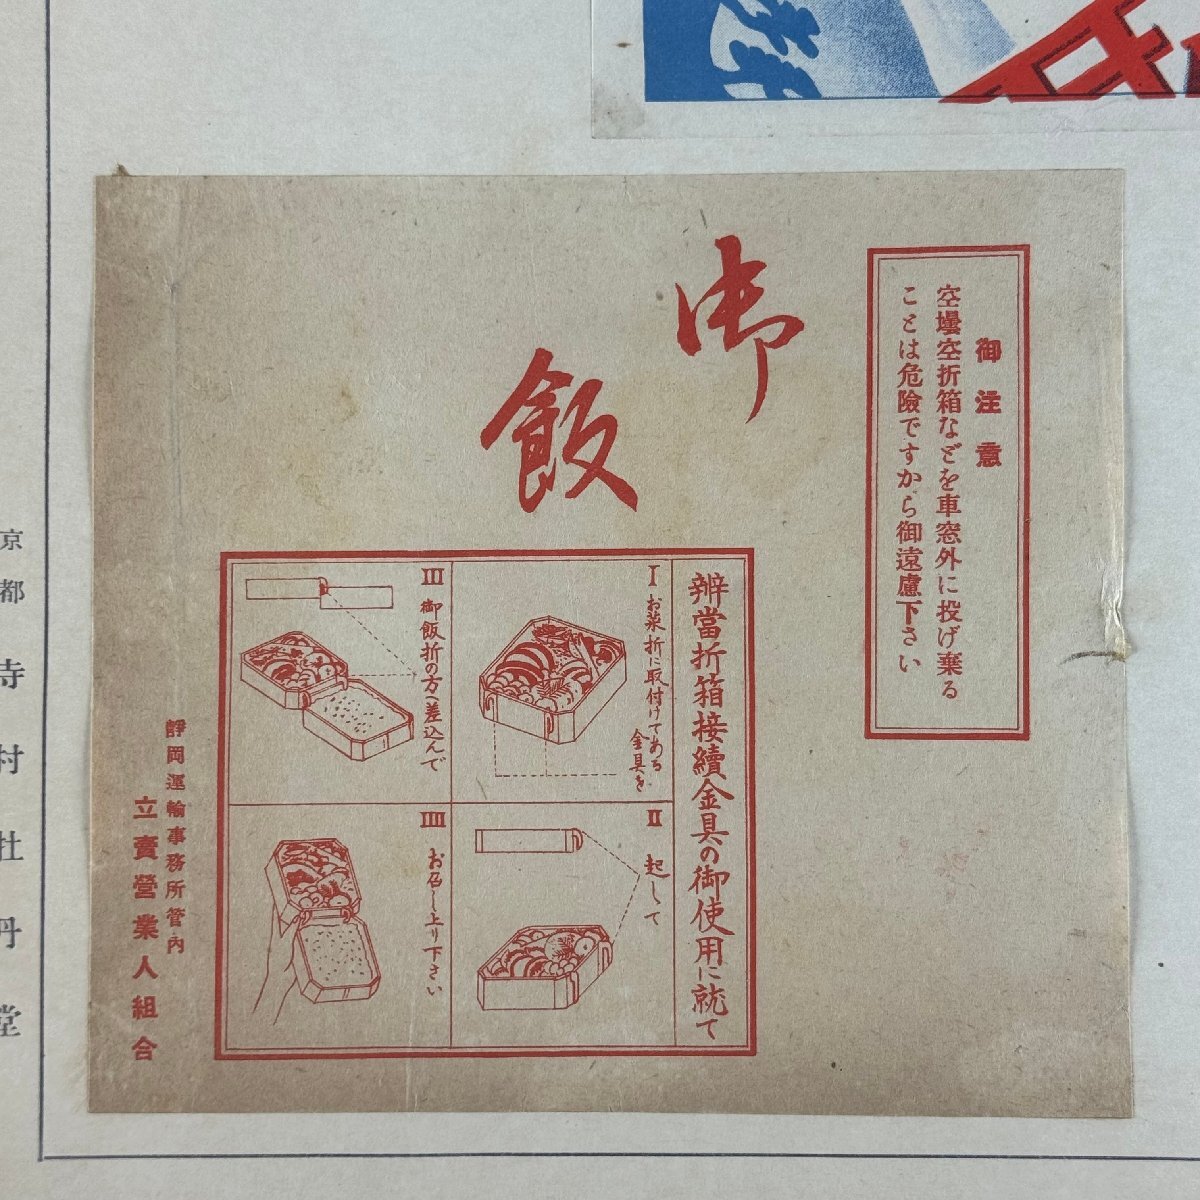 御飯
御注意
空壜空折箱などを車窓外に投げ棄る
ことは危險ですから御遠慮下さい
辨當折箱接續金具の御使用に就て
I
お菜折に取付けてある
金具を
II
起して
III
御飯折の方へ差込んで
IIII
お召し上り下さい
靜岡運輸事務所管內
立賣營業人組合
京都寺村牡丹堂